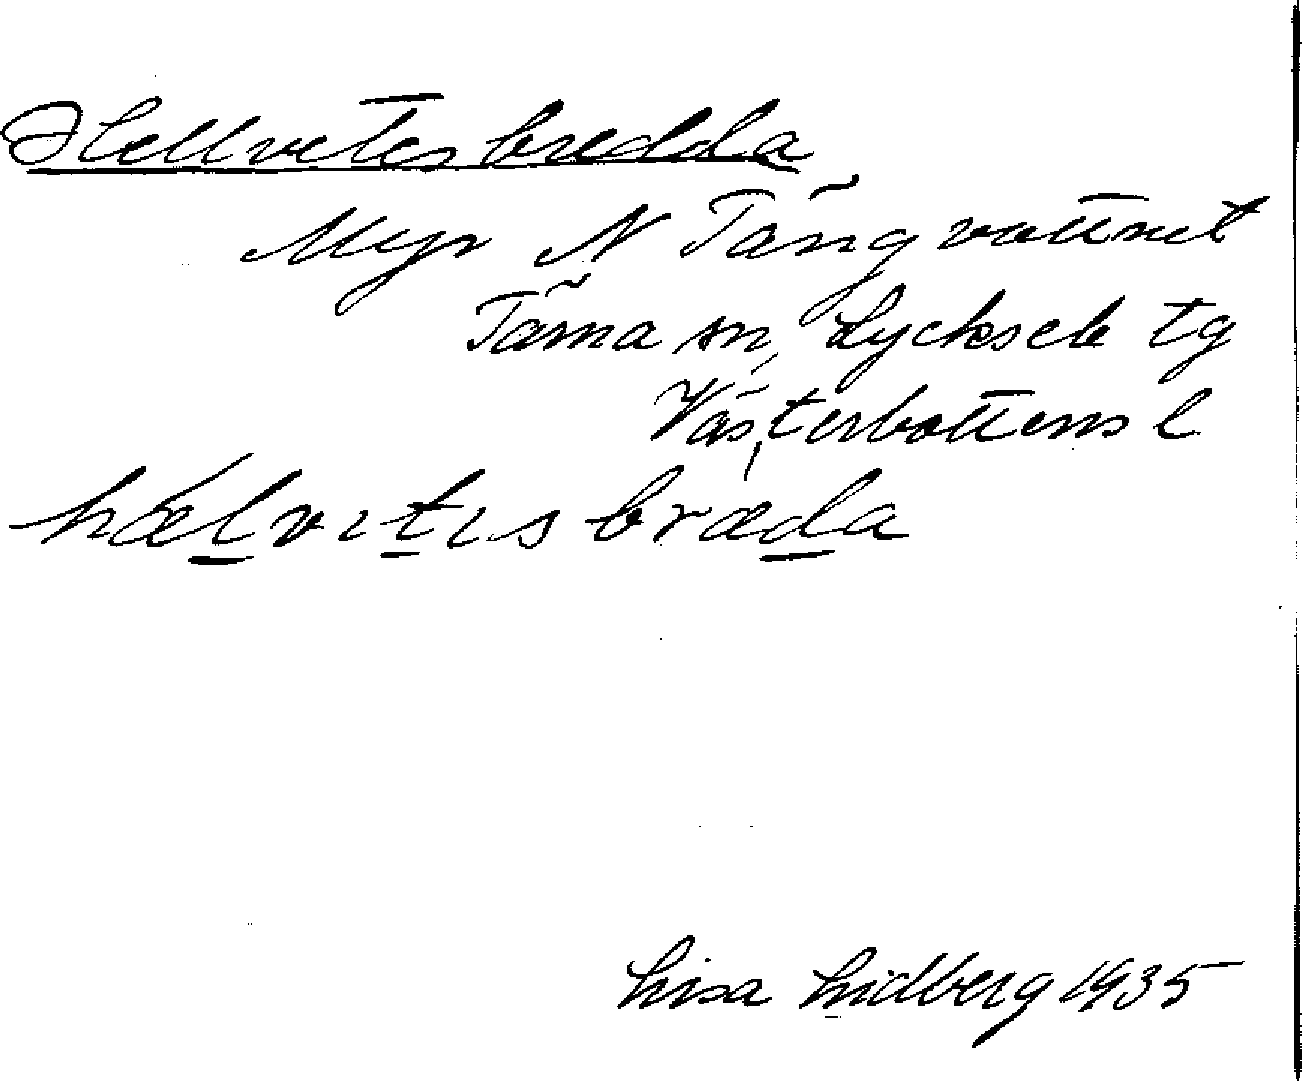 Hellvetesbredda
Myr N Tängvattnet
Tärna sn, Lycksele tg
Västerbottens l
hælvıtısbræda
Lisa Lidberg 1935